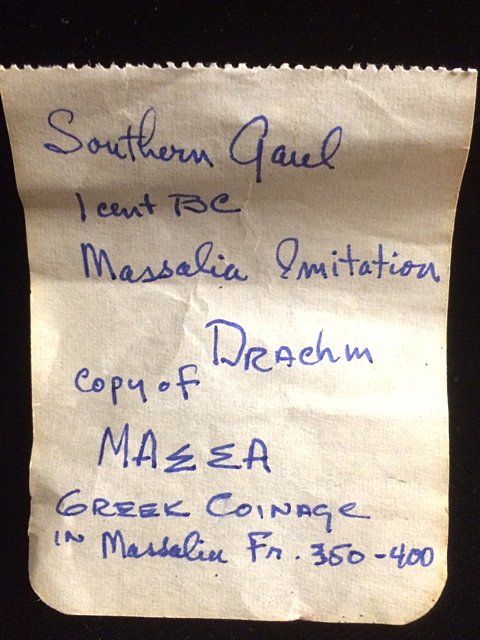 Southern Gaul
1 cent BC
Massalia Imitation
Drachm
copy of
ΜΑΣΣΑ
GREEK COINAGE
IN Massalia Fr. 350-400